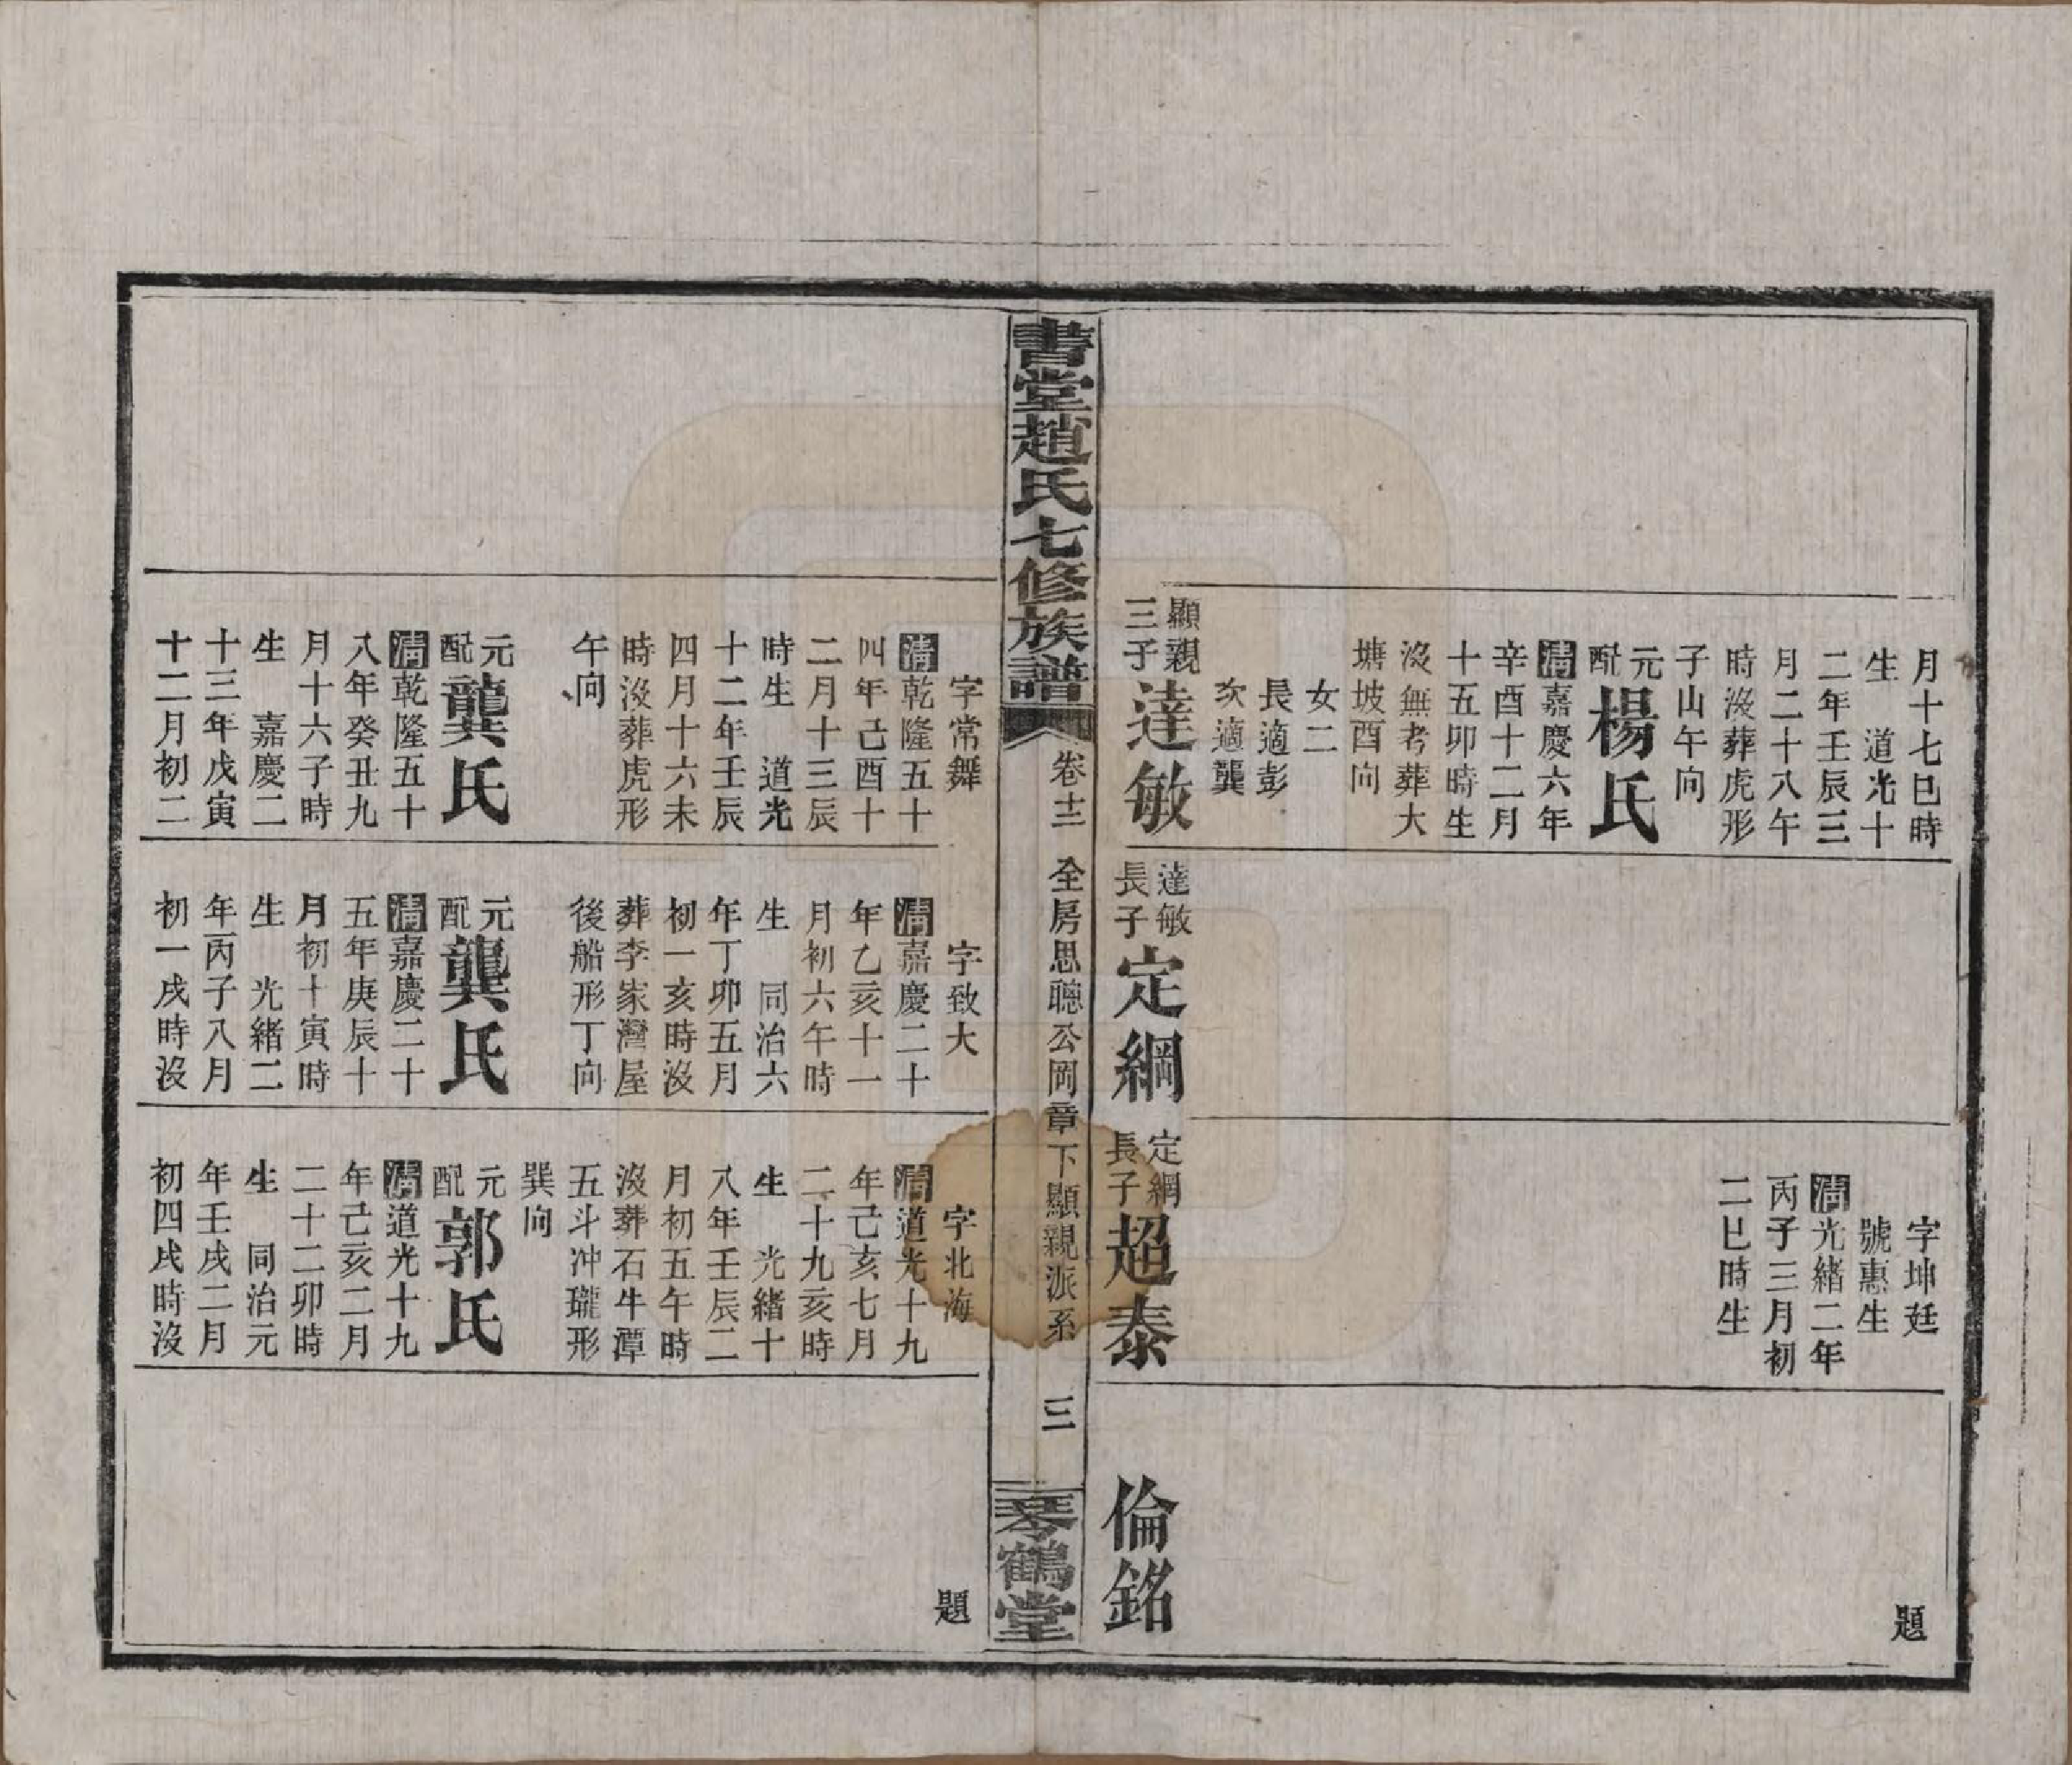 月十七巳時
生　道光十
二年壬辰三
月二十八午
時沒葬虎形
子山午向
元配楊氏
清嘉慶六年
辛酉十二月
十五卯時生
沒無考葬大
塘坡酉向
女二
長適彭
次適龔
顯親三子達敏
達敏長子定綱
字坤廷
號惠生
清光緒二年
丙子三月初
二巳時生
定綱長子超泰
題
倫銘
書堂趙氏七修族譜
卷十二　全房思聰公岡章下顯親派系　三
琴鶴堂
字常舞
清乾隆五十
四年己酉十
二月十三辰
時生　道光
十二年壬辰
四月十六未
時沒葬虎形
午向
元配龔氏
清乾隆五十
八年癸丑九
月十六子時
生　嘉慶二
十三年戊寅
十二月初二
字致大
清嘉慶二十
年乙亥十一
月初六午時
生　同治六
年丁卯五月
初一亥時沒
葬李家灣屋
後船形丁向
元配龔氏
清嘉慶二十
五年庚辰十
月初十寅時
生　光緒二
年丙子八月
初一戌時沒
字北海
清道光十九
年己亥七月
二十九亥時
生　光緒十
八年壬辰二
月初五午時
沒葬石牛潭
五斗冲瓏形
巽向
元配郭氏
清道光十九
年己亥二月
二十二卯時
生　同治元
年壬戌二月
初四戌時沒
題